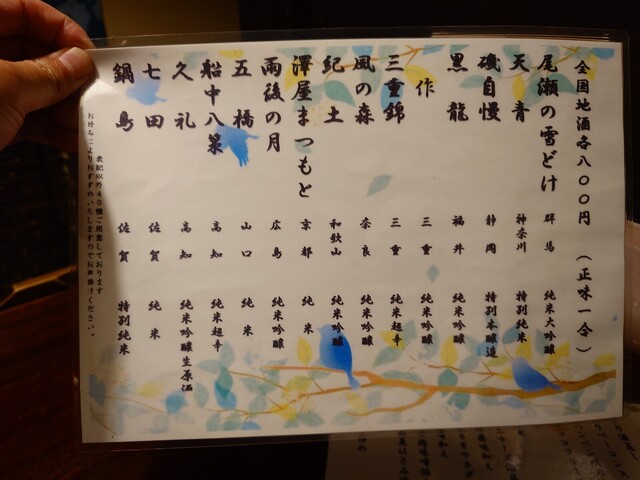 全国地酒各八〇〇円 (正味一合)
尾瀬の雪どけ 群馬 純米大吟醸
天青 神奈川 特別純米
磯自慢 静岡 特別本醸造
黒龍 福井 純米吟醸
作 三重 純米吟醸
三重錦 三重 純米超辛
風の森 奈良 純米吟醸
紀土 和歌山 純米吟醸
澤屋まつもと 京都 純米
雨後の月 広島 純米吟醸
五橋 山口 純米
船中八策 高知 純米超辛
久礼 高知 純米吟醸生原酒
七田 佐賀 純米
鍋島 佐賀 特別純米
表記以外40種ご用意しております
お好みによりおすすめいたしますのでお申附けください。